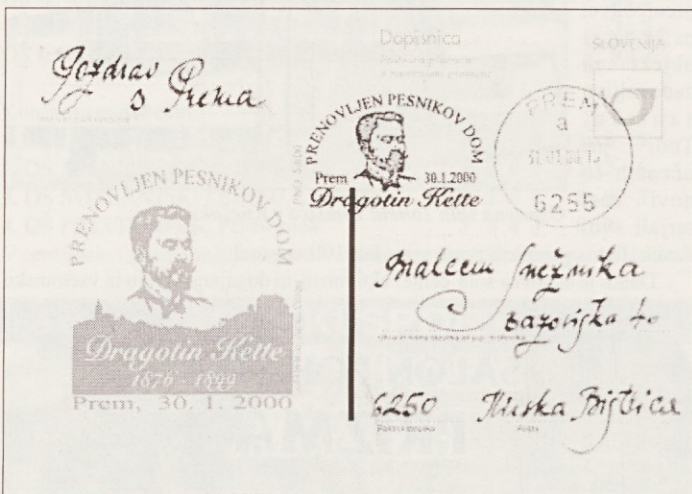 Pozdrav
s Prema
PRENOVLJEN PESNIKOV DOM
Dragotin Kette
1876 - 1899
Prem, 30. 1. 2000
Dopisnica
SLOVENIJA
PRENOVLJEN PESNIKOV DOM
Prem 30.1.2000
Dragotin Kette
PREM
a
6255
Snežnika
Bazoviška 40
6250 Ilirska Bistrica
Pošta